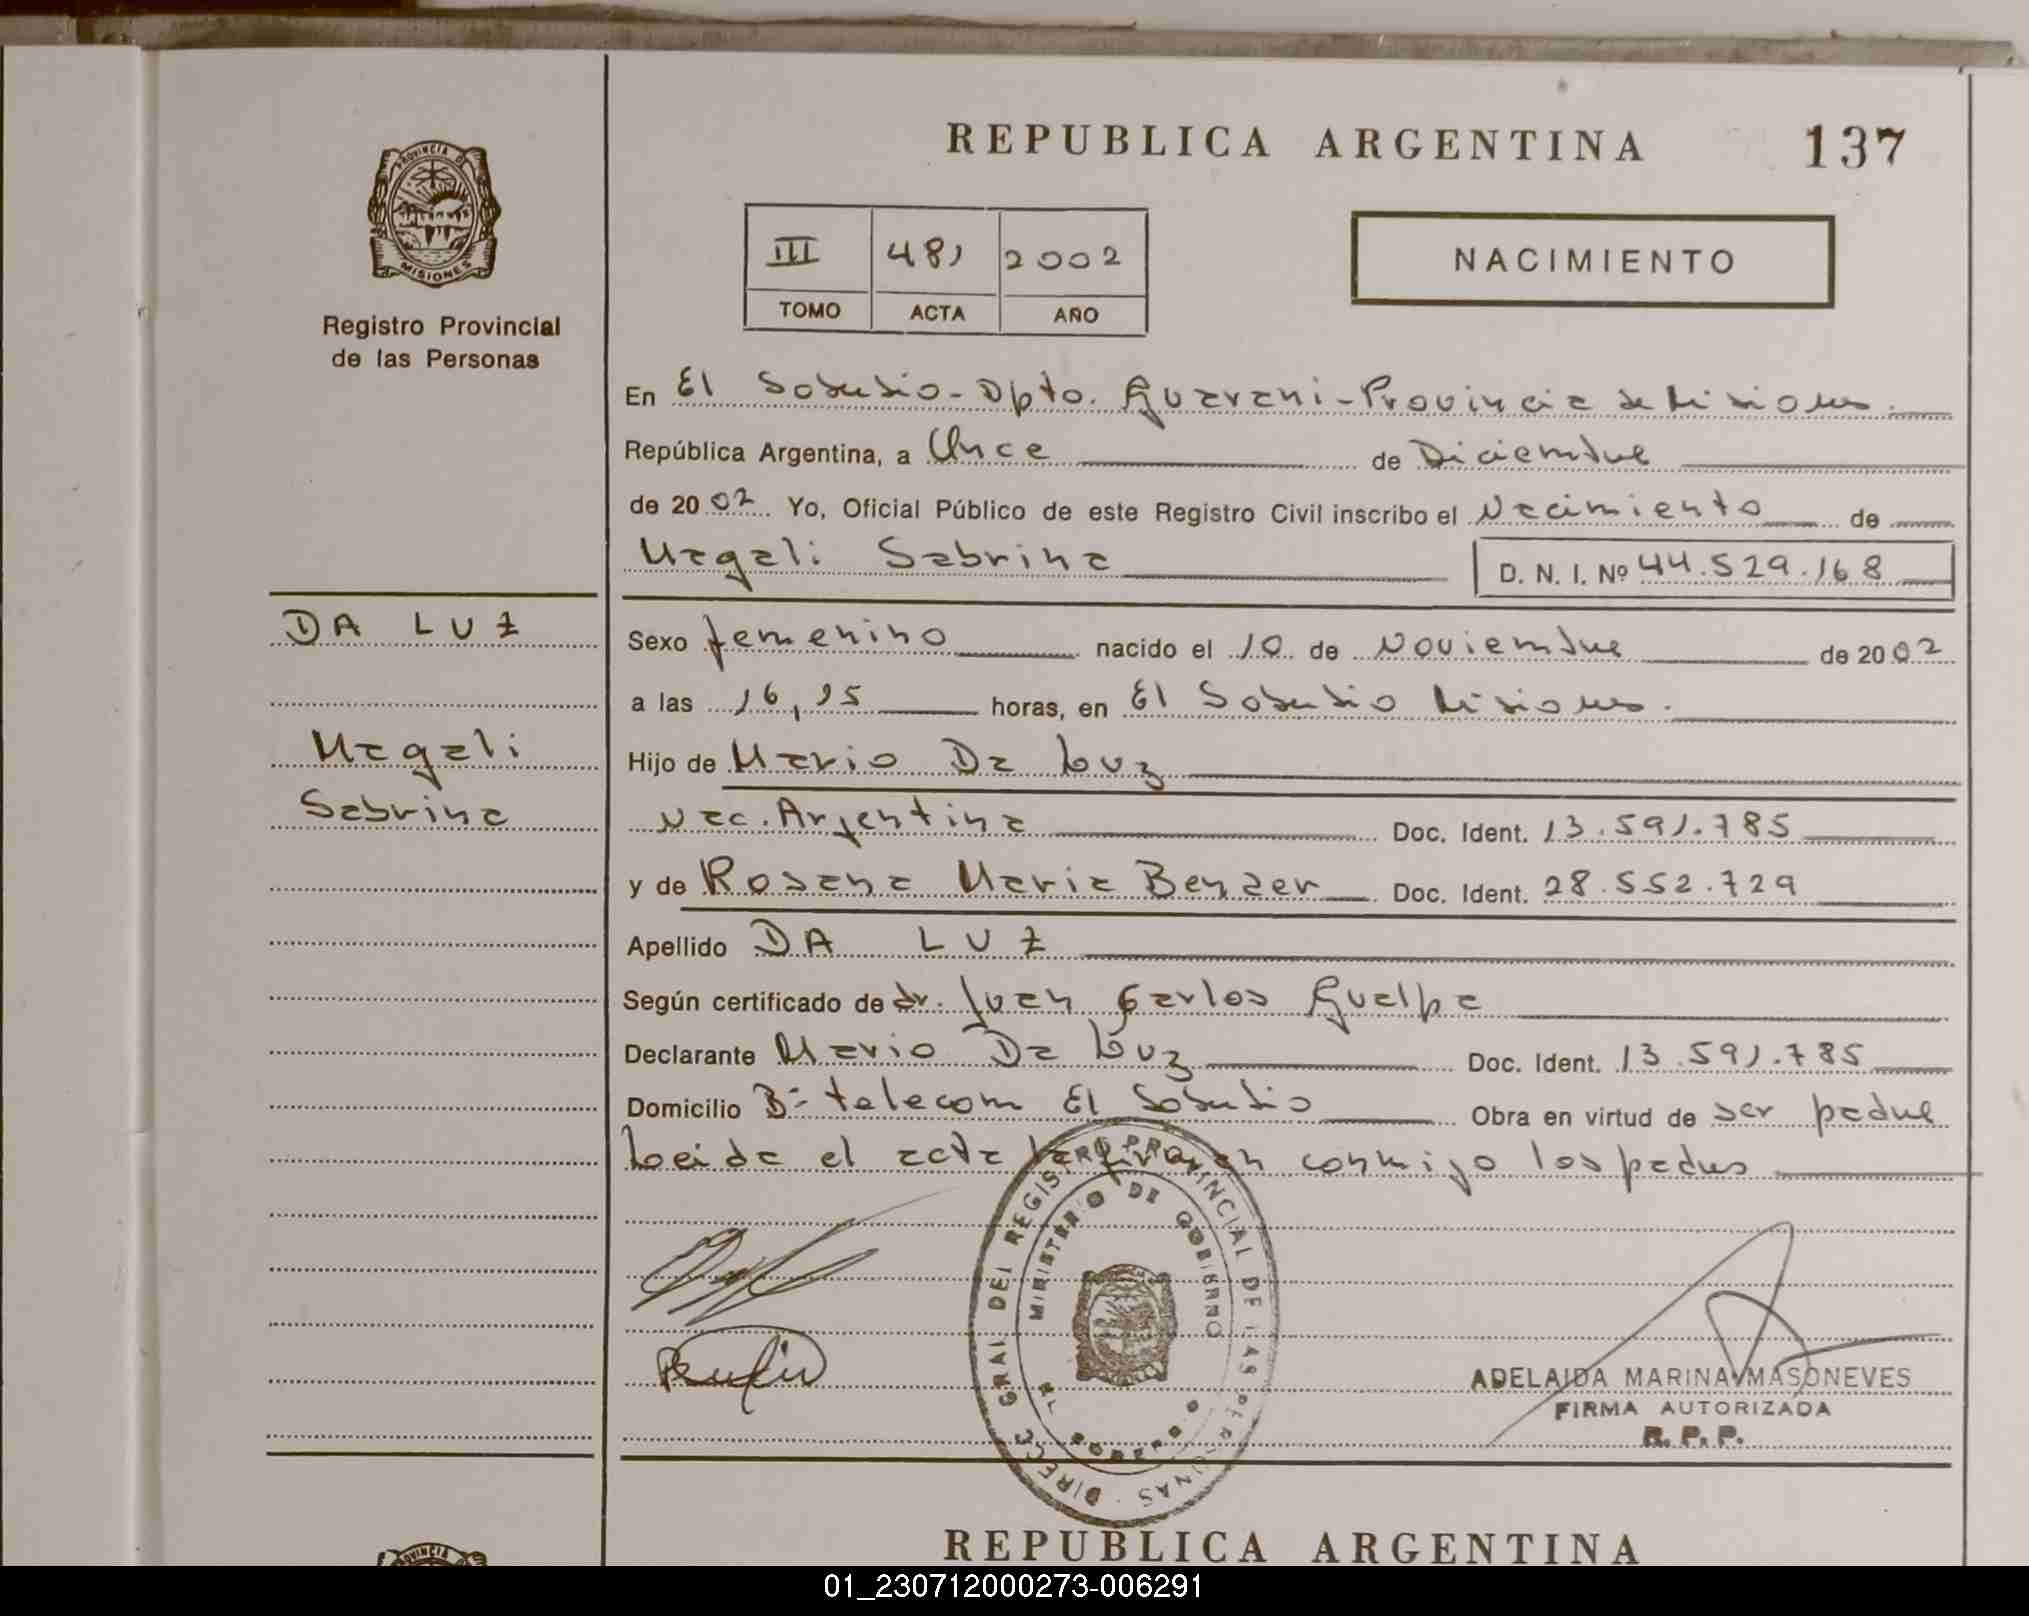 REPUBLICA ARGENTINA 137
PROVINCIA D
MISIONES
Registro Provincial
de las Personas
III 481 2002
TOMO ACTA AÑO
NACIMIENTO
En El Soberbio - Dpto. Guarani - Provincia de Misiones.
República Argentina, a Once de Diciembre
de 2002 Yo, Oficial Público de este Registro Civil inscribo el Nacimiento de
Magali Sabrina D. N. I. Nº 44.529.168
DA LUZ
Magali
Sabrina
Sexo femenino nacido el 10 de Noviembre de 2002
a las 16,15 horas, en El Soberbio Misiones.
Hijo de Mario Da Luz
Nac. Argentina Doc. Ident. 13.591.785
y de Rosana Maria Doc. Ident. 28.552.729
Apellido DA LUZ
Según certificado de dr. Juan Carlos Guelpa
Declarante Mario Da Luz Doc. Ident. 13.591.785
Domicilio Bº telecom El Soberbio Obra en virtud de ser padre
Leida el acta la firman conmigo los padres
DIRECC GRAL DEL REGISTRO PROVINCIAL DE LAS PERSONAS
MINISTERIO DE GOBIERNO
ADELAIDA MARINA MASONEVES
FIRMA AUTORIZADA
R. P. P.
REPUBLICA ARGENTINA
01_230712000273-006291